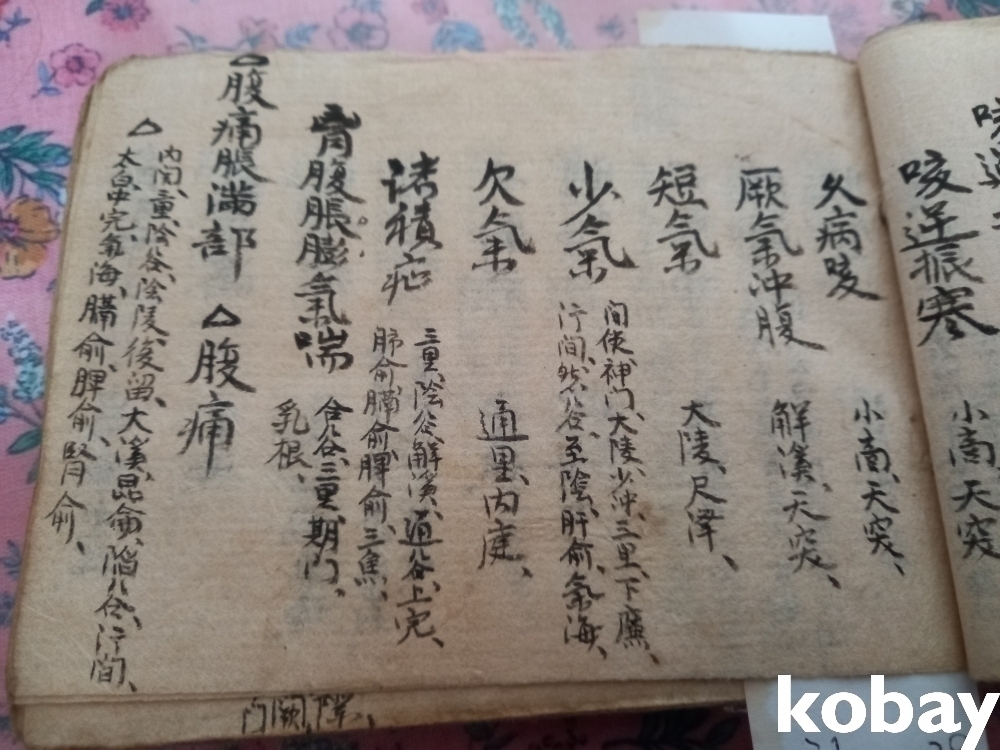 咳逆振寒
小商、天突
久病咳
小商、天突、
厥氣沖腹
解溪、天突、
短氣
大陵、尺澤、
少氣
间使、神门、大陵、少沖、三里、下廉、
行间、然谷、至陰、肝俞、氣海、
欠氣
通里、内庭、
諸積
三里、陰谷、解溪、通谷、上完、
肺俞、膈俞、脾俞、三焦、
腹脹膨氣喘
合谷、三里、期门、
乳根、
△腹痛脹滿部
△腹痛
△
内関、三里、陰谷、陰陵、後留、大溪、昆侖、陷谷、行间、
太白、中完、氣海、膈俞、脾俞、腎俞、
kobay